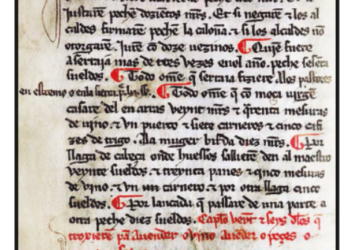 justare peche dozientos mrs. Et si negare & los al
caldes firmaren peche la calona. & si los alcaldes no
otorgaren. Iure co doze uezinos. Qui fuere
a sertaja mas de tres vezes enel año. peche sesera
sueldos. Todo ome q sertaja fiziere alos pastores
en estremo o en la sierra
Todo ome que co moca uirgen
casare del en arras veynt mrs & quenta mesuras
de uino. & un puerco & siete carneros & cinco cafi
zes de trigo. Ala muger bifda diez mrs. Por
llaga de cabeça onde huessos sallieren den al maestro
veynte sueldos. & treynta panes & cinco mesuras
de vino. & un carnero & por otra llaga cinco
sueldos. Por lançada que passare de una parte a
otra peche diez sueldos. Capto veynt & seys dlos q
troxiere pan auender o uino auender o peges o